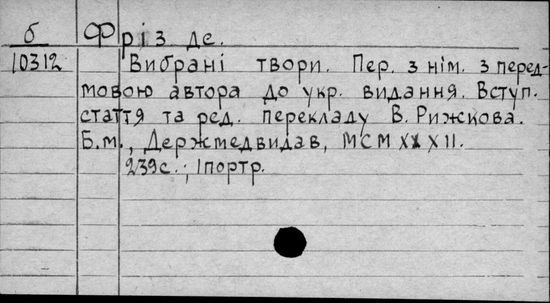 б
10312
Фріз де.
Вибрані твори. Пер. з нім. з перед-
мовою автора до укр. видання. Вступ.
стаття та ред. перекладу В. Рижкова.
Б.м., Держмедвидав, MCMXXXII.
239с.; 1портр.